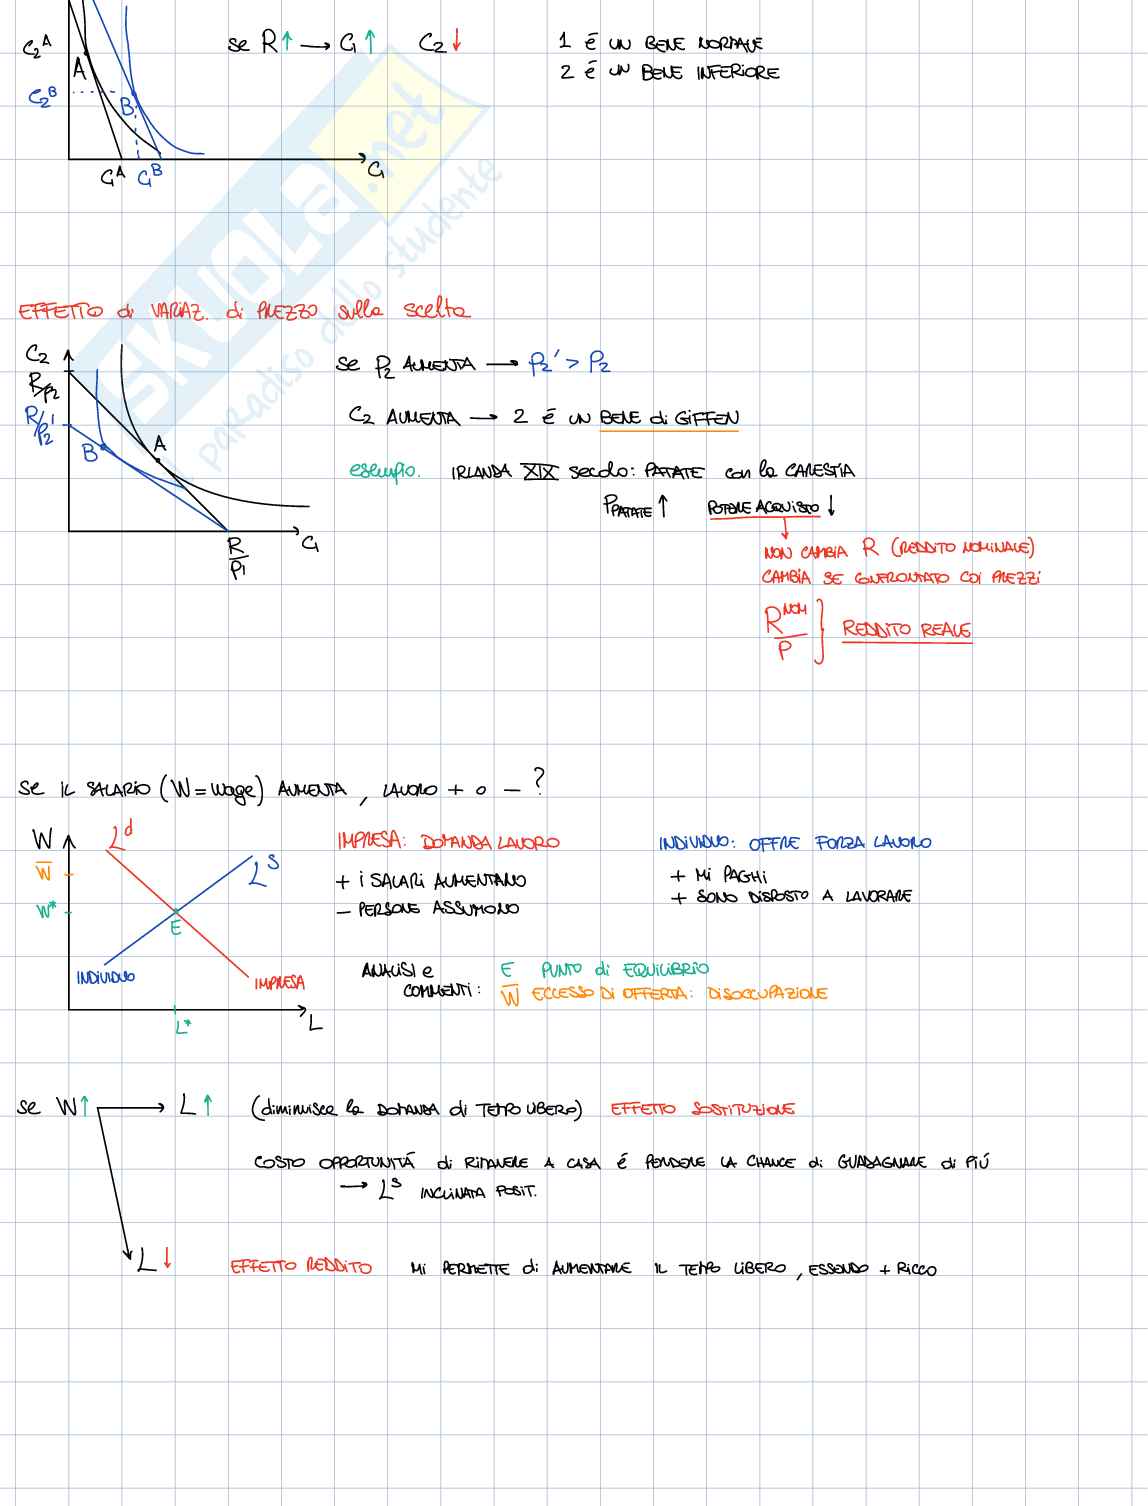 C₂ᴬ
se R↑ → C₁↑ C₂↓
1 É UN BENE NORMALE
A
2 É UN BENE INFERIORE
C₂ᴮ
B
C₁
C₁ᴬ C₁ᴮ
SKUOLA.net
paradiso dello studente
EFFETTO di VARIAZ. di PREZZO sulla scelta
C₂
se P₂ AUMENTA → P₂' > P₂
R/P₂
R/P₂'
C₂ AUMENTA → 2 É UN BENE di GIFFEN
A
B
esempio. IRLANDA XIX secolo: PATATE con la CARESTIA
P PATATE ↑ POTERE ACQUISTO ↓
R/P₁
C₁
NON CAMBIA R (REDDITO NOMINALE)
CAMBIA SE CONFRONTATO COI PREZZI
R^NOM/P } REDDITO REALE
se IL SALARIO (W = wage) AUMENTA, LAVORO + o − ?
W
Lᵈ
IMPRESA: DOMANDA LAVORO
INDIVIDUO: OFFRE FORZA LAVORO
W̅
Lˢ
+ i SALARI AUMENTANO
+ Mi PAGHI
− PERSONE ASSUMONO
+ SONO DISPOSTO A LAVORARE
W*
E
INDIVIDUO
IMPRESA
ANALISI e
COMMENTI:
E PUNTO di EQUILIBRIO
W̅ ECCESSO DI OFFERTA: DISOCCUPAZIONE
L*
L
se W↑ → L↑ (diminuisce la DOMANDA di TEMPO LIBERO) EFFETTO SOSTITUZIONE
COSTO OPPORTUNITÁ di RIMANERE A CASA É PERDERE LA CHANCE di GUADAGNARE di PIÚ
→ Lˢ INCLINATA POSIT.
L↓ EFFETTO REDDITO Mi PERMETTE di AUMENTARE IL TEMPO LIBERO, ESSENDO + RICCO